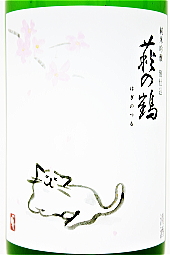 純米吟醸
萩の鶴
はぎのつる
清酒